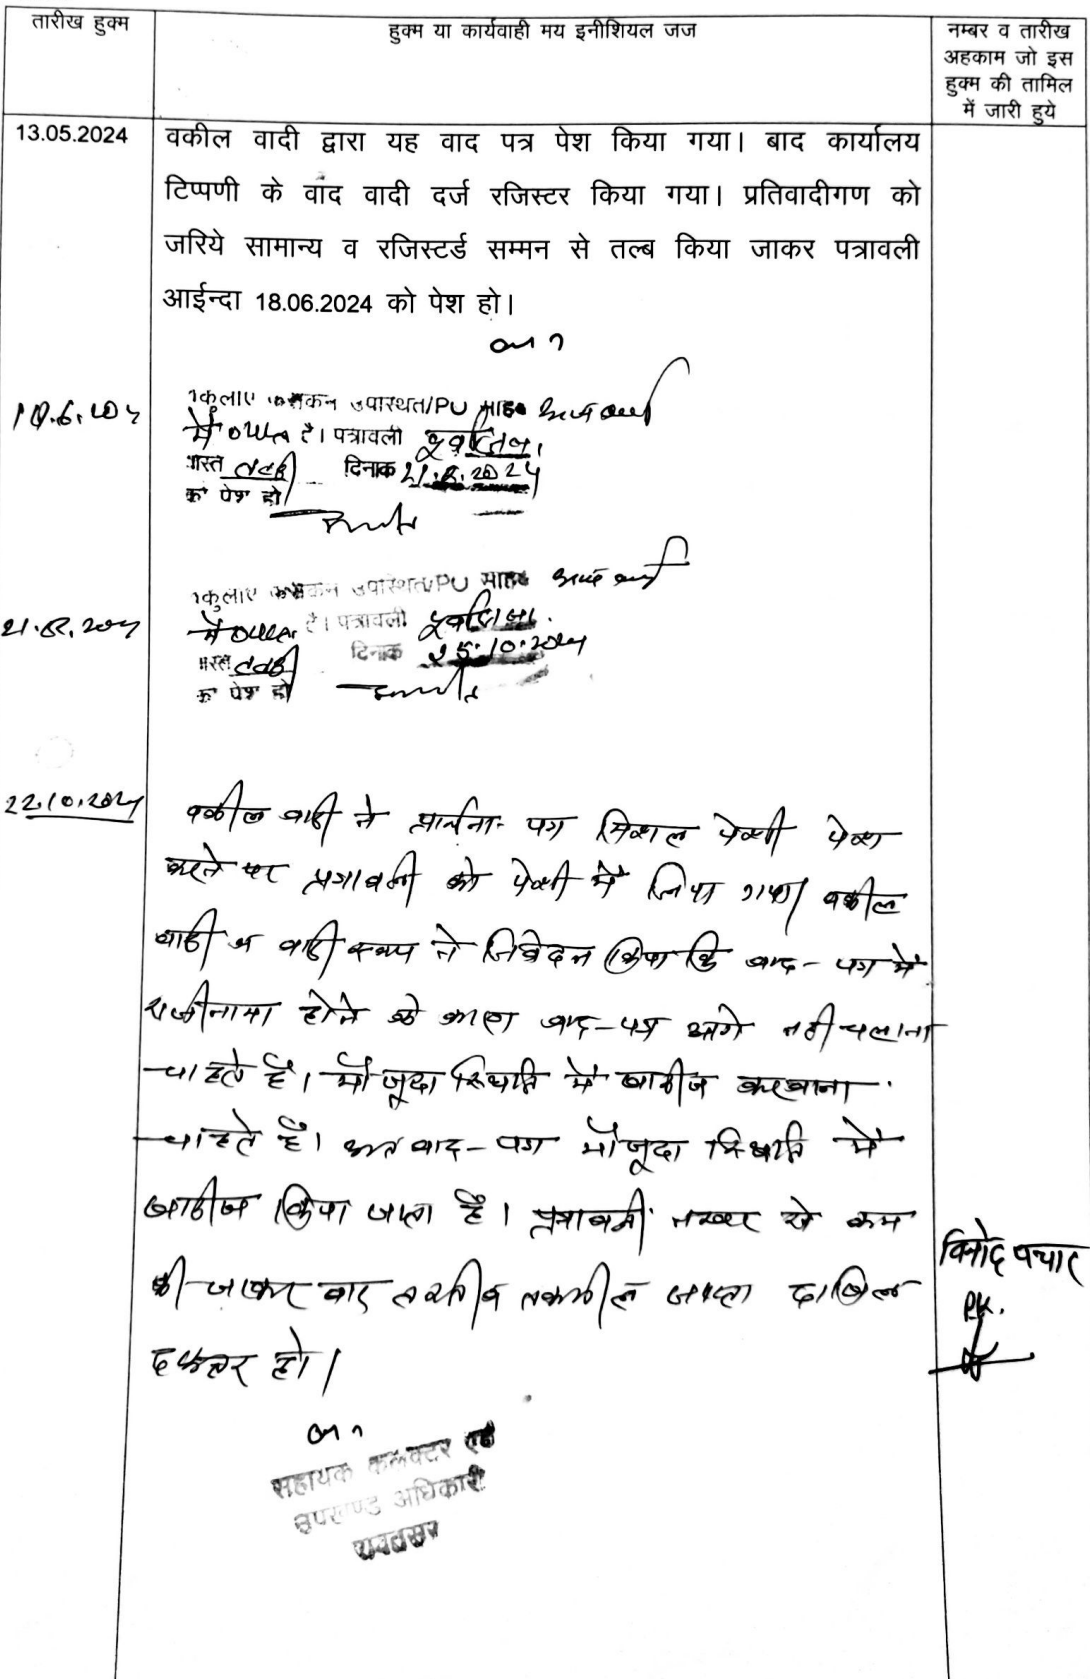 तारीख हुक्म
हुक्म या कार्यवाही मय इनीशियल जज
नम्बर व तारीख
अहकाम जो इस
हुक्म की तामिल
में जारी हुये
13.05.2024
वकील वादी द्वारा यह वाद पत्र पेश किया गया। बाद कार्यालय
टिप्पणी के वाद वादी दर्ज रजिस्टर किया गया। प्रतिवादीगण को
जरिये सामान्य व रजिस्टर्ड सम्मन से तल्ब किया जाकर पत्रावली
आईन्दा 18.06.2024 को पेश हो।
उपस्थित/PO
है। पत्रावली
दिनांक 21.8.2024
को पेश हो
उपस्थित/PO
है। पत्रावली
दिनांक 25.10.2024
को पेश हो
22.10.2024
वकील वादी ने प्रार्थना-पत्र मिशल पेशी पेश
करने पर पत्रावली को पेशी में लिया गया। वकील
वादी व वादी स्वयं ने निवेदन किया कि वाद-पत्र में
राजीनामा होने के कारण वाद-पत्र आगे नहीं चलाना
चाहते हैं। मौजूदा स्थिति में खारीज करवाना
चाहते हैं। अतः वाद-पत्र मौजूदा स्थिति में
खारीज किया जाता है। पत्रावली नम्बर से कम
की जाकर बाद तरतीब तकमील जाप्ता दाखिल
दफ्तर हो।
विनोद पचार
सहायक कलक्टर एवं
उपखण्ड अधिकारी
रावतसर